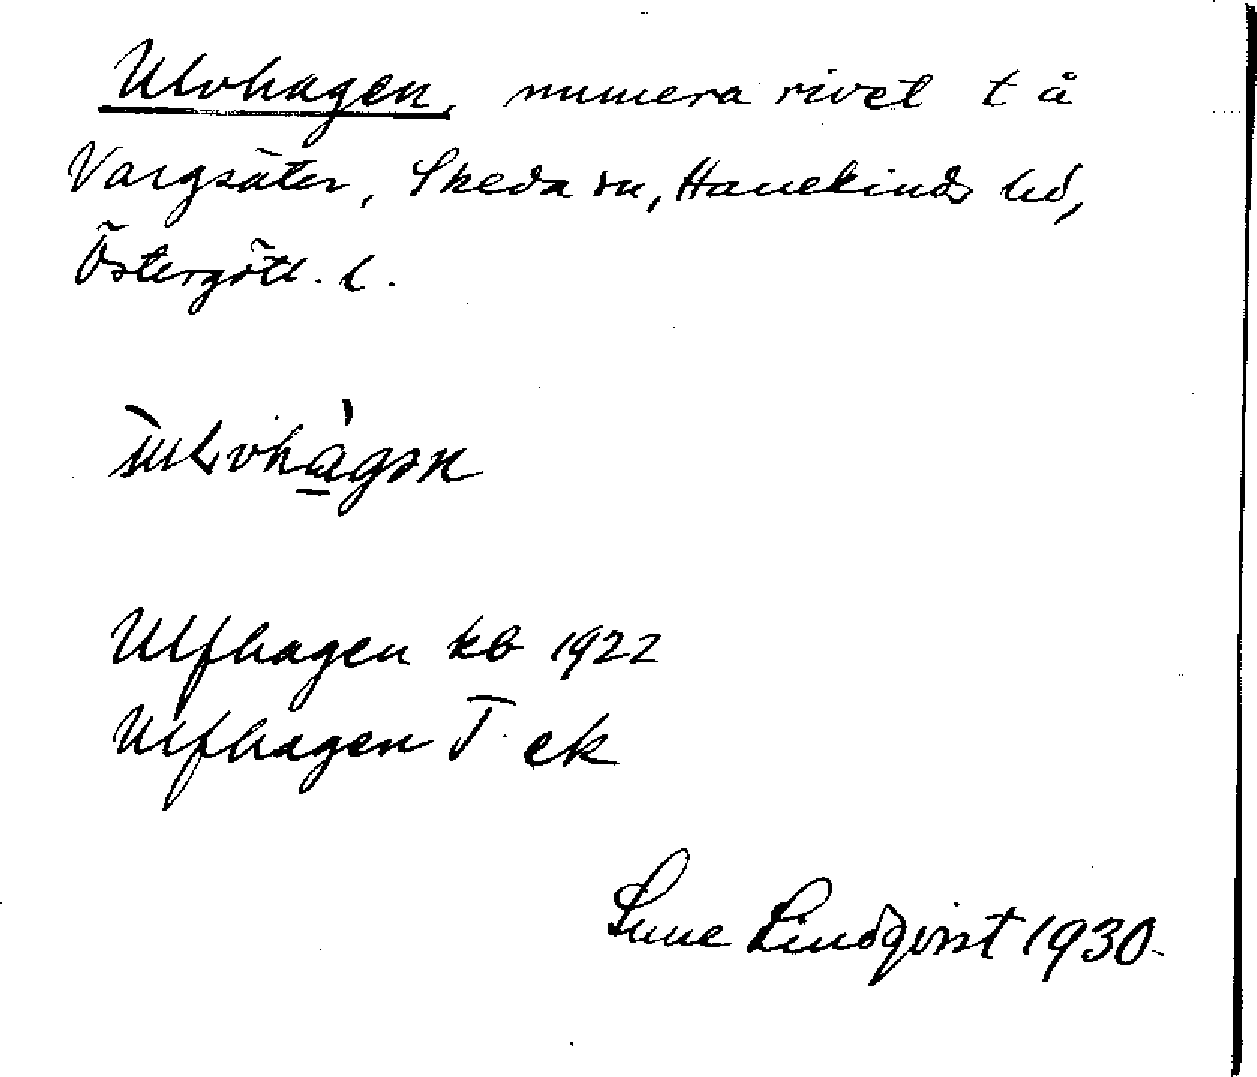 Ulvhagen, numera rivet t å
Vargsäter, Skeda sn, Hanekinds hd,
Östergötl. l.
Ulfhagen kb 1922
Ulfhagen J ek
Sune Lindqvist 1930